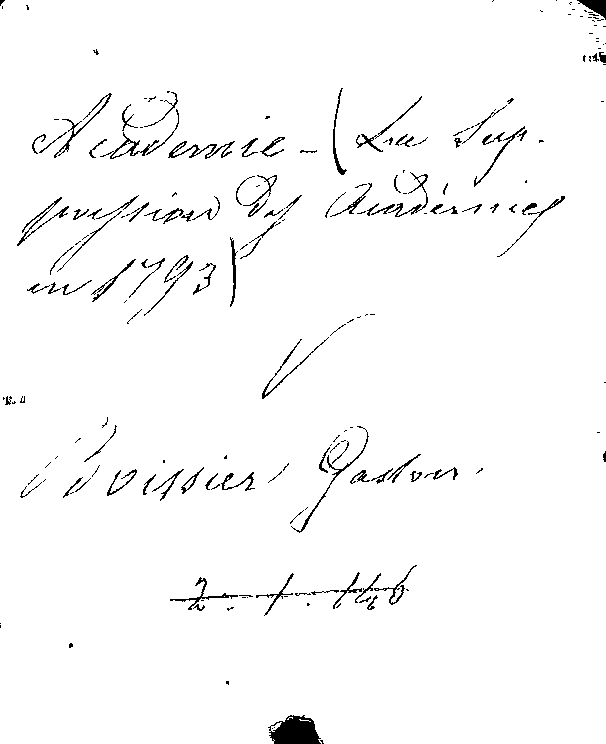 Académie - (La Sup-
pression des Académies
en 1793)
V
Boissier Gaston.
2. 1. 146